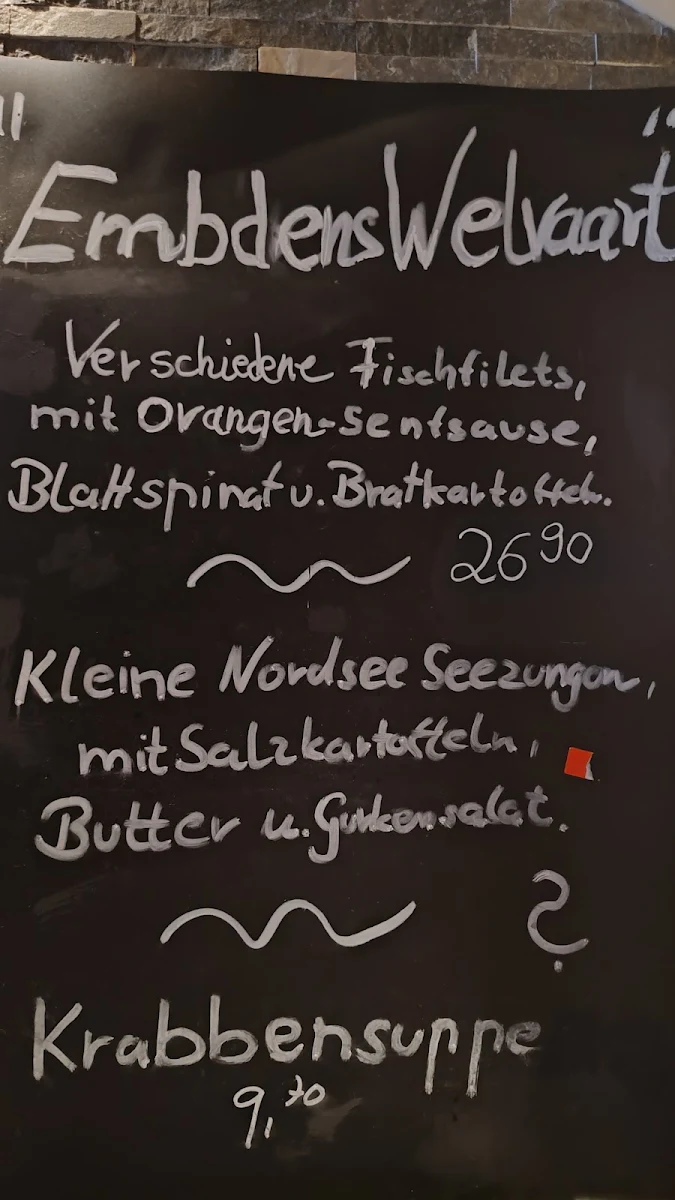 "EmbdensWelvaart"
Verschiedene Fischfilets,
mit Orangen-Senfsause,
Blattspinat u. Bratkartoffeln.
26 90
Kleine Nordsee Seezungen,
mit Salzkartoffeln,
Butter u. Gurkensalat.
?
Krabbensuppe
9,70